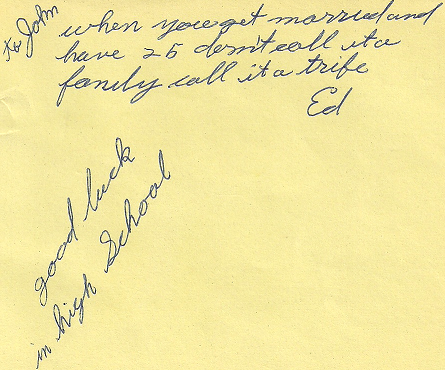 to John
when you get married and
have 25 don't call it a
family call it a trife
Ed
good luck
in high School